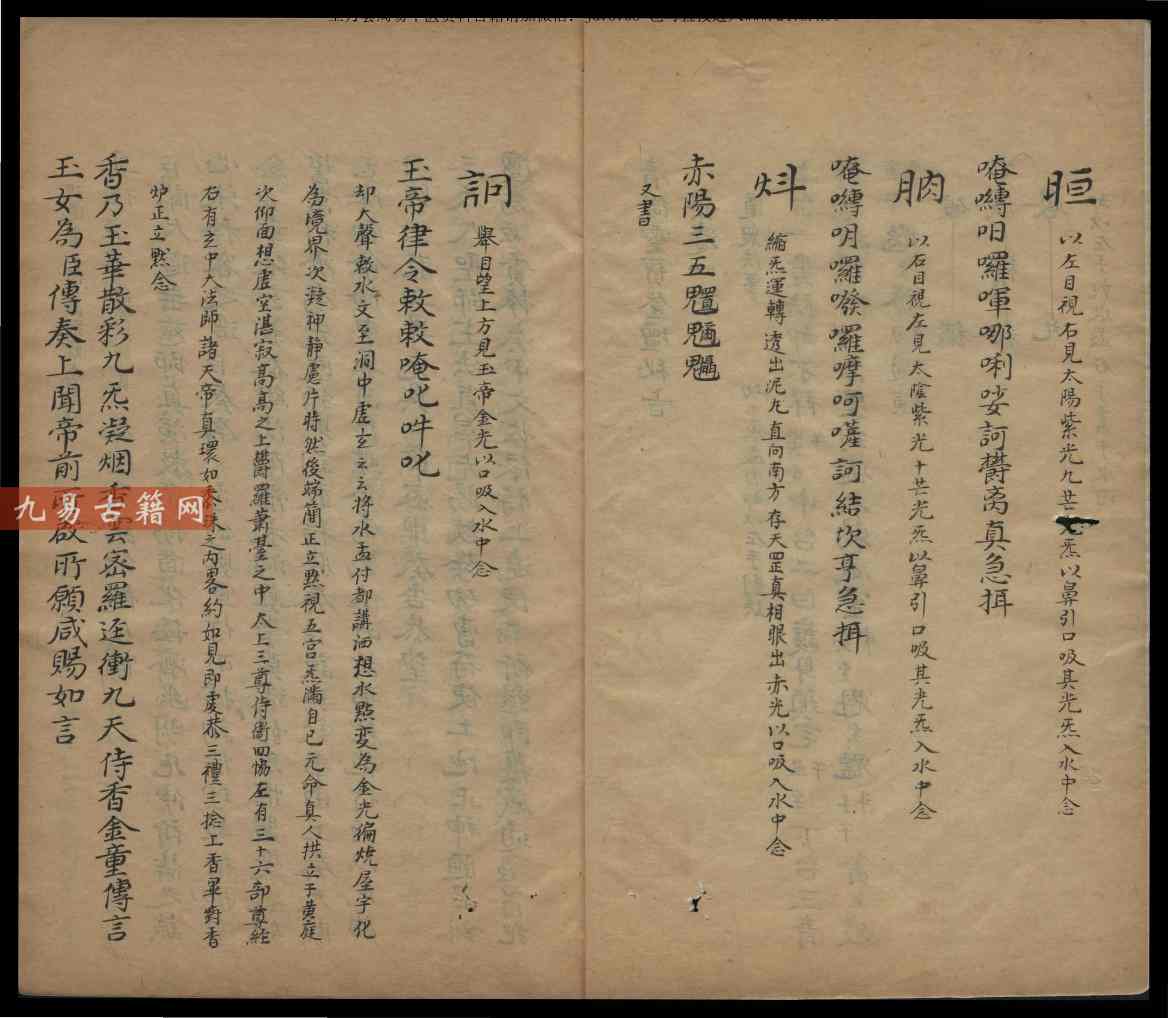 晅
以左目視右見太陽紫光九芒光炁以鼻引口吸其光炁入水中念
唵嚩咟囉㖷哪唎娑訶欝离真急
䏎
以右目視左見太陰紫光十芒光炁以鼻引口吸其光炁入水中念
唵嚩明囉囉摩呵訶結坎亨急
炓
縮炁運轉透出泥丸直向南方存天罡真相眼出赤光以口吸入水中念
赤陽三五
又書
詞
舉目望上方見玉帝金光以口吸入水中念
玉帝律令敕敕唵叱吽叱
却大聲敕水文至洞中虚玄云云将水盂付都講洒想水點変為金光徧燒屋宇化
為境界次凝神静慮片時然後端簡正立黙視五宫炁滿自己元命真人拱立于黄庭
次仰面想虚空湛寂高高之上欝羅蕭臺之中太上三尊侍衛四協左有三十六部尊經
右有玄中大法師諸天帝真環如之内畧約如見即虔恭三禮三捻上香畢對香
炉正立黙念
香乃玉華散彩九炁凝烟香雲密羅逕衝九天侍香金童傳言
玉女為臣傳奏上聞帝前啟所願咸賜如言
九易古籍网